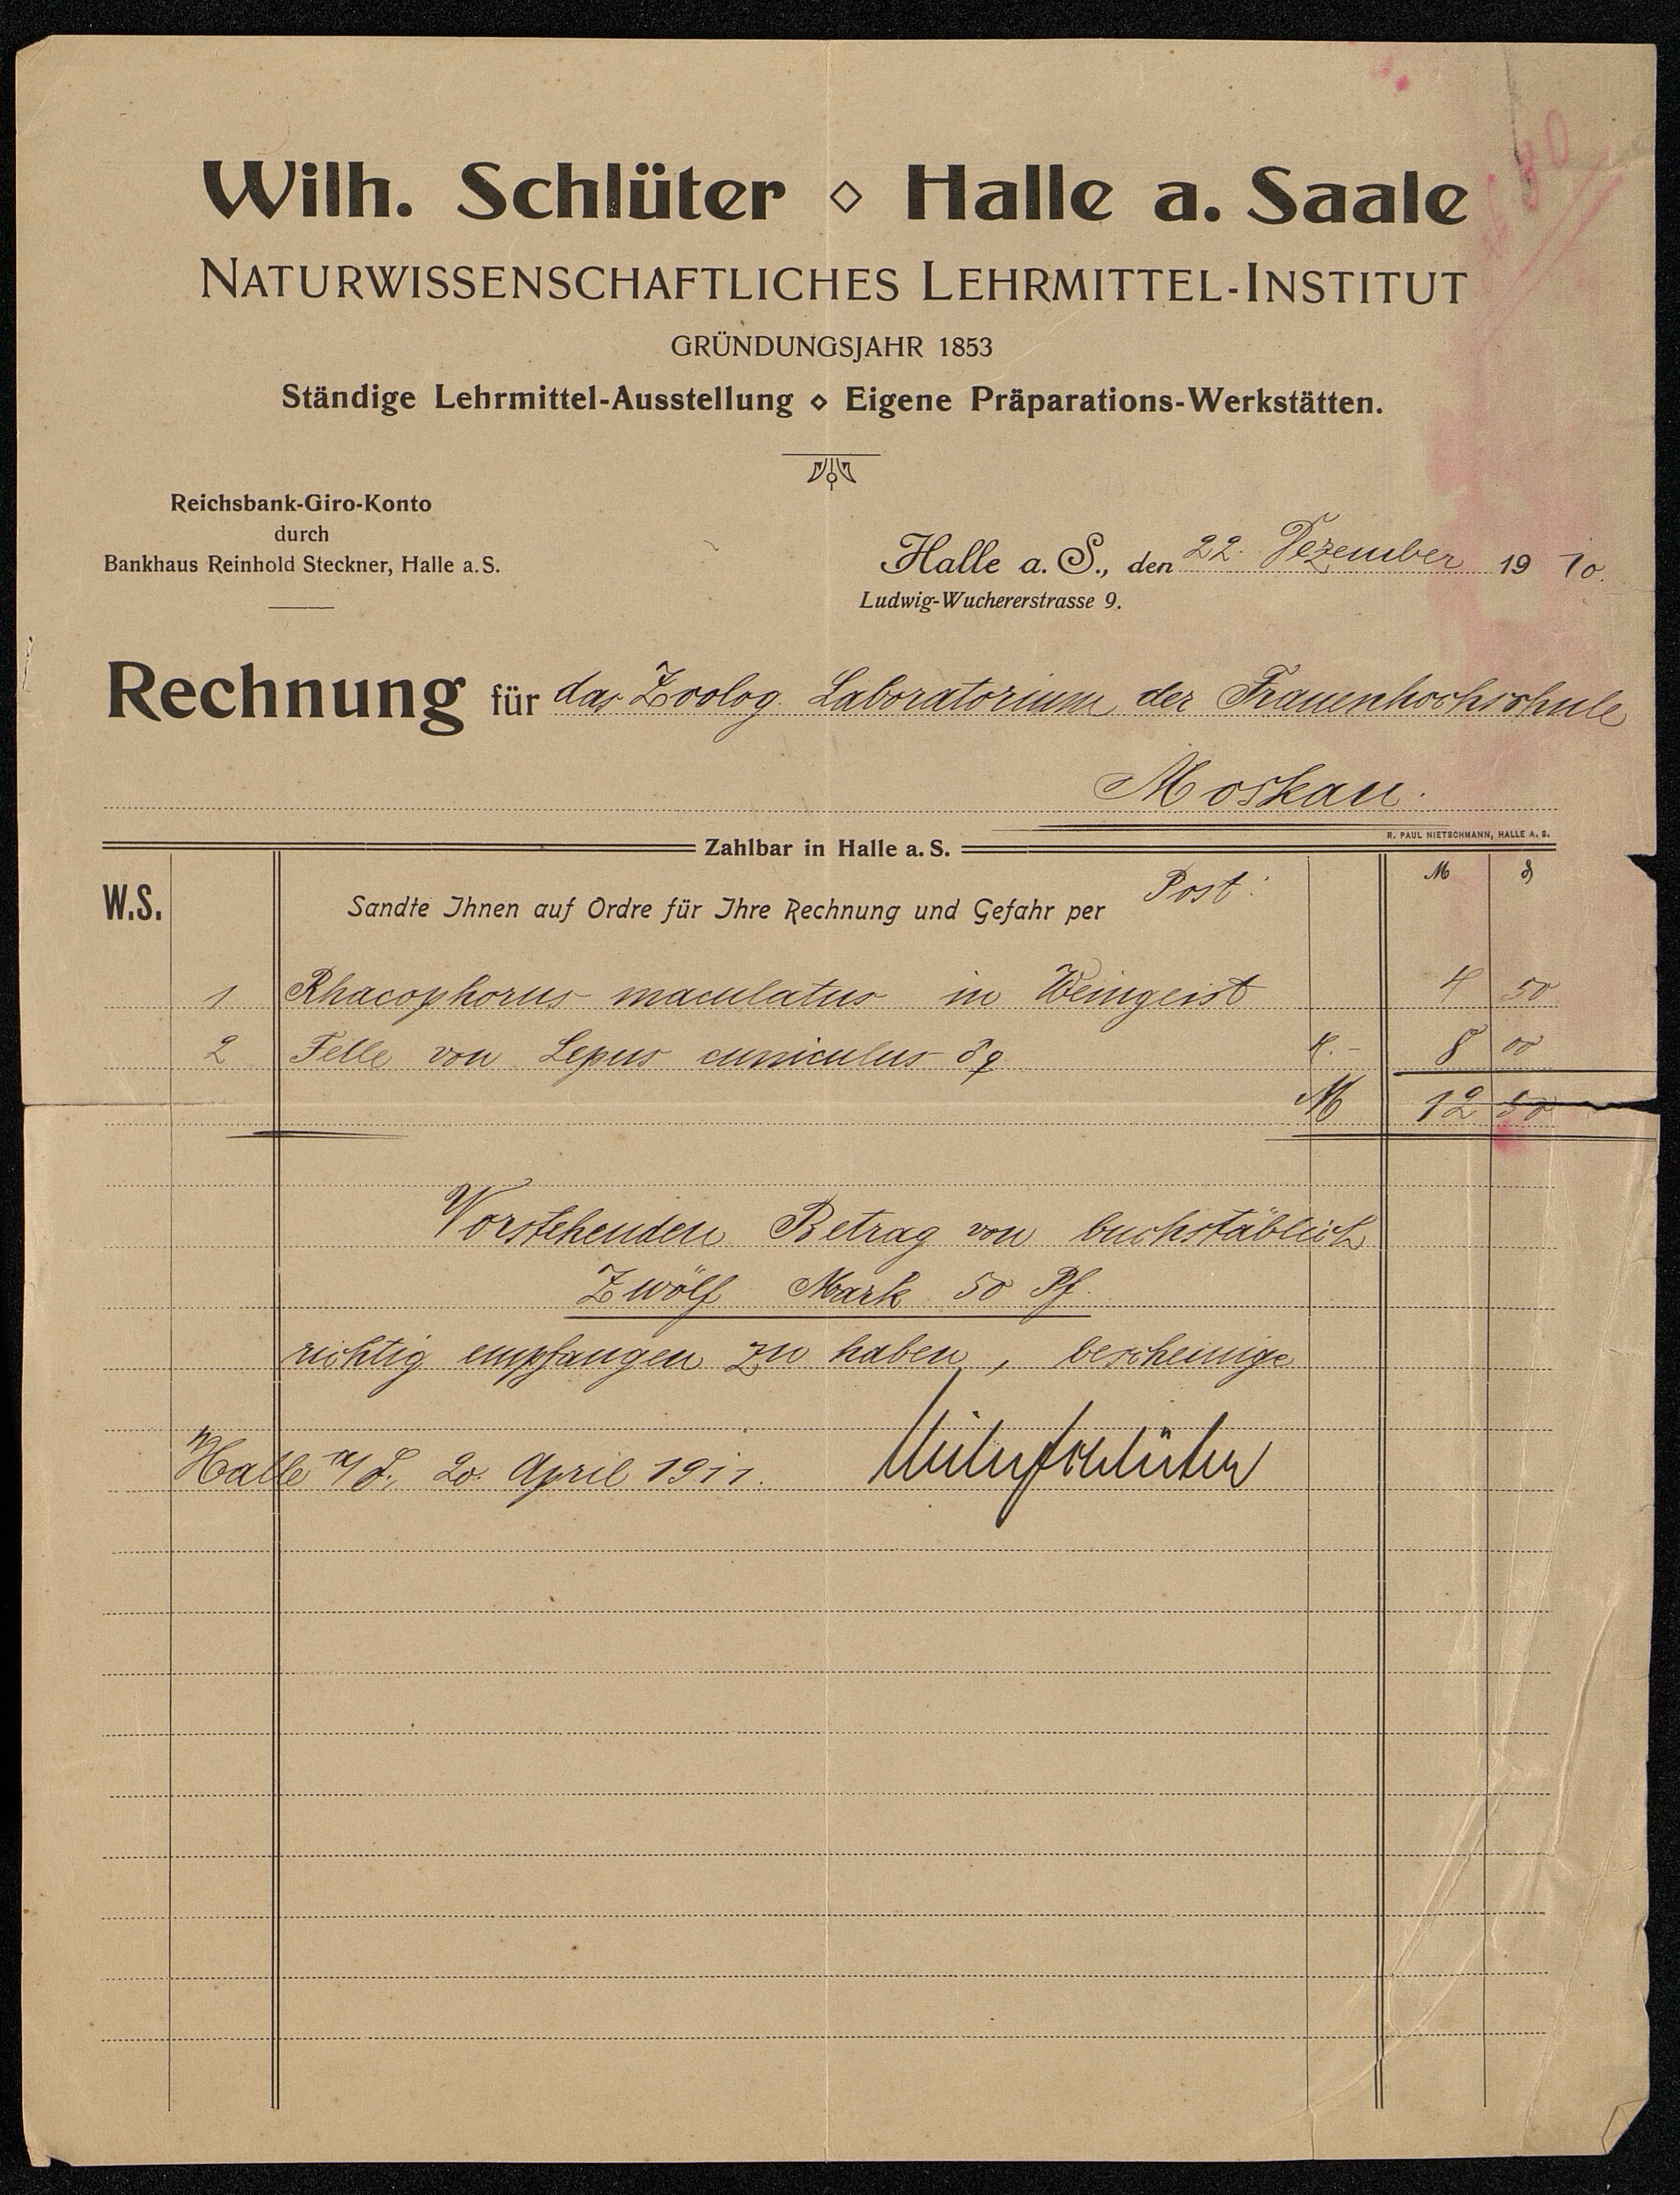 Wilh. Schlüter ◇ Halle a. Saale
NATURWISSENSCHAFTLICHES LEHRMITTEL-INSTITUT
GRÜNDUNGSJAHR 1853
Ständige Lehrmittel-Ausstellung ◇ Eigene Präparations-Werkstätten.
Reichsbank-Giro-Konto
durch
Bankhaus Reinhold Steckner, Halle a.S.
Halle a. S., den 22. Dezember 19 10.
Ludwig-Wuchererstrasse 9.
Rechnung für das Zoolog. Laboratorium der Frauenhochschule
Moskau.
R. PAUL NIETSCHMANN, HALLE A. S.
Zahlbar in Halle a. S.
W.S. Sandte Ihnen auf Ordre für Ihre Rechnung und Gefahr per Post: M ₰
1 Rhacophorus maculatus in Weingeist 4 50
2 Felle von Lepus cuniculus ♂♀ 4.- 8 00
M 12 50
Vorstehenden Betrag von buchstäblich
Zwölf Mark 50 Pf.
richtig empfangen zu haben, bescheinige
Halle a/S., 20. April 1911. Wilh. Schlüter